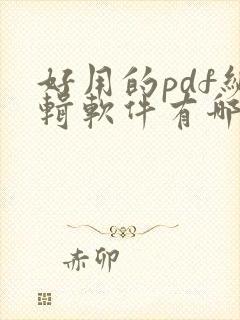 好用的pdf編
輯軟件有哪
赤卯